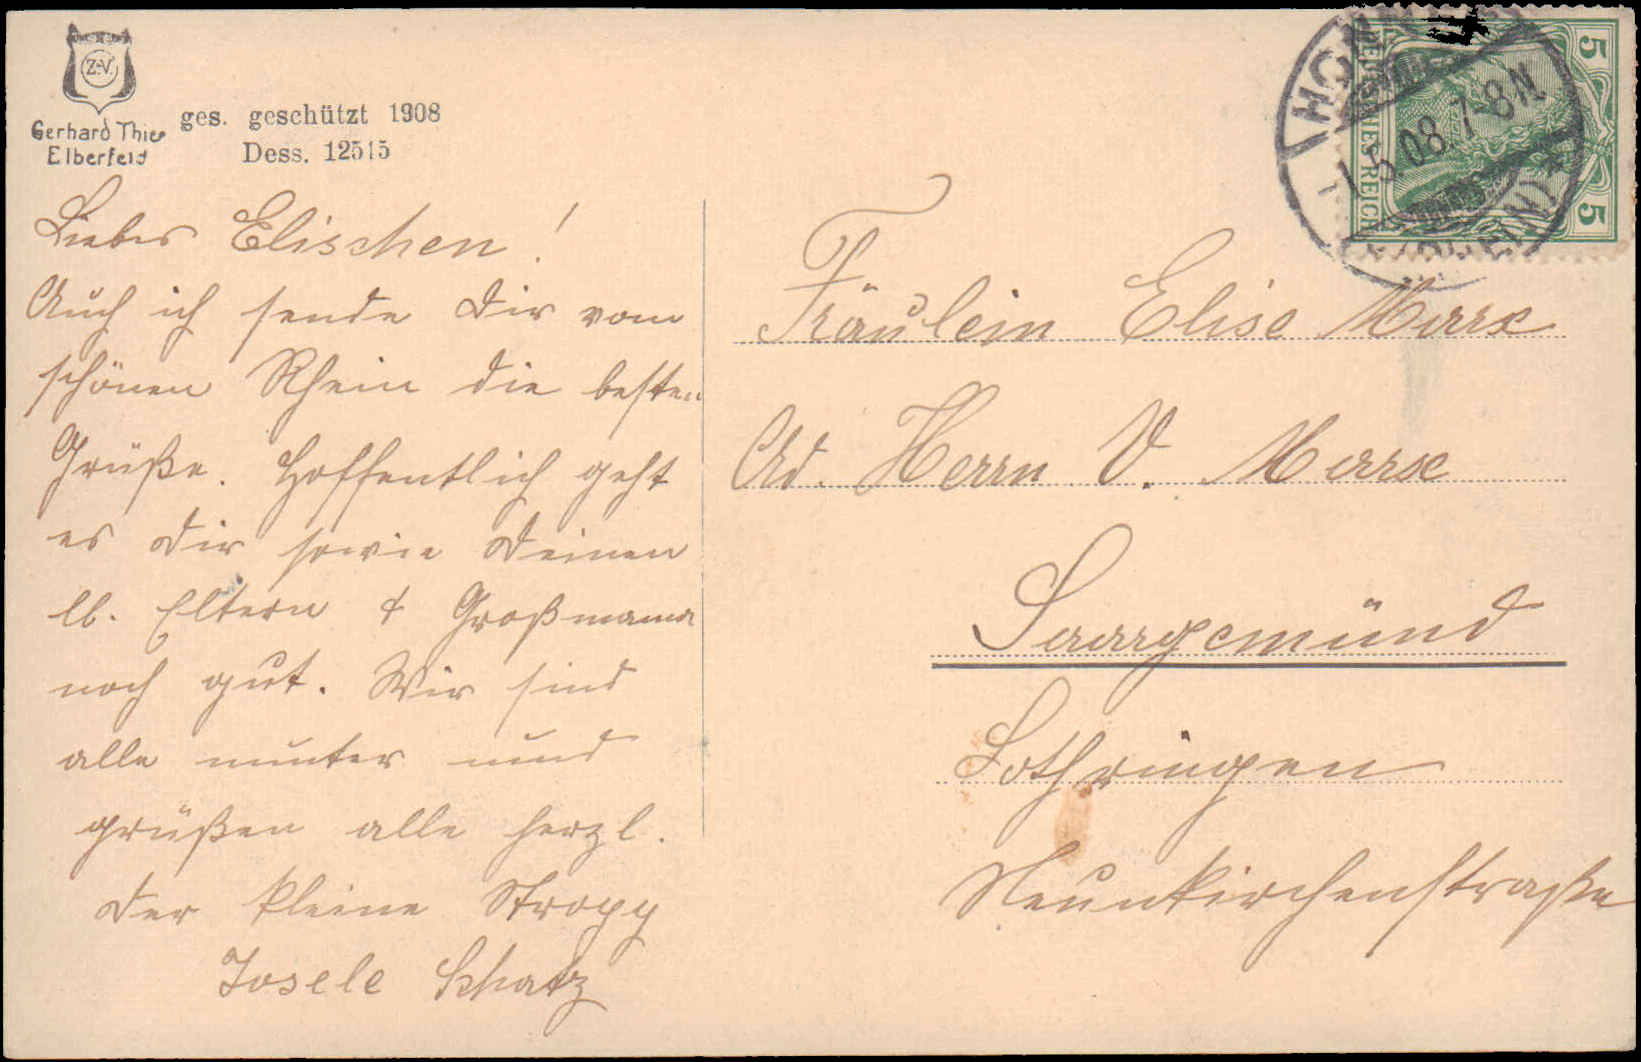 Z.V.
Gerhard Thies
Elberfeld
ges. geschützt 1908
Dess. 12515
Liebes Elischen!
Auch ich sende Dir vom
schönen Rhein die besten
Grüße. Hoffentlich geht
es Dir sowie Deinen
lb. Eltern & Großmama
noch gut. Wir sind
alle munter und
grüßen alle herzl.
Der kleine Stropp
Josele Schatz
5
DEUTSCHES REICH
5
1.5.08. 7-8N.
Fräulein Elise Marx
Ad. Herrn V. Marx
Saargemünd
Lothringen
Neunkirchenstraße